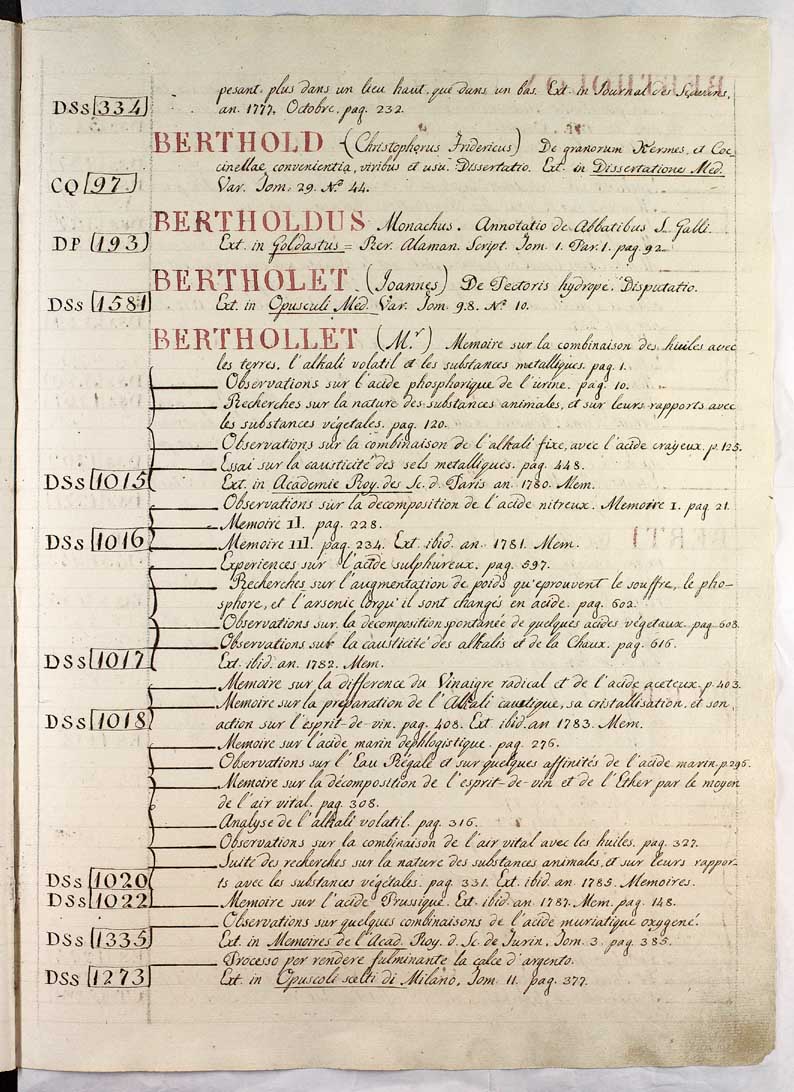 pesant plus dans un lieu haut, que dans un bas. Ext. in Journal des Sçavans,
DSs 334 an. 1777. Octobre, pag. 232.
BERTHOLD (Christophorus Fridericus) De granorum Kermes, et Coc=
cinellae convenientia, viribus et usu. Dissertatio. Ext. in Dissertationes Med.
CQ 97 Var. Tom. 29. N.º 44.
BERTHOLDUS Monachus. Annotatio de Abbatibus S. Galli.
DP 193 Ext. in Goldastus = Rer. Alaman. Script. Tom. 1. Par. 1. pag. 92
BERTHOLET (Joannes) De Pectoris hydrope. Disputatio.
DSs 1581 Ext. in Opusculi Med. Var. Tom. 98. N.º 10.
BERTHOLLET (M.r) Memoire sur la combinaison des huiles avec
les terres, l'alkali volatil et les substances metalliques. pag. 1.
Observations sur l'acide phosphorique de l'urine. pag. 10.
Recherches sur la nature des substances animales, et sur leurs rapports avec
les substances végetales. pag. 120.
Observations sur la combinaison de l'alkali fixe, avec l'acide crayeux. p. 125.
Essai sur la causticité des sels metalliques. pag. 448.
DSs 1015 Ext. in Academie Roy. des Sc. d. Paris an. 1780. Mem.
Observations sur la decomposition de l'acide nitreux. Memoire I. pag. 21.
Memoire II. pag. 228.
DSs 1016 Memoire III. pag. 234. Ext. ibid. an. 1781. Mem.
Experiences sur l'acide sulphureux. pag. 597.
Recherches sur l'augmentation de poids qu'eprouvent le souffre, le pho-
sphore, et l'arsenic lorqu'il sont changés en acide. pag. 602.
Observations sur la decomposition spontanée de quelques acides végetaux. pag. 608.
Observations sur la causticité des alkalis et de la Chaux. pag. 616.
DSs 1017 Ext. ibid. an. 1782. Mem.
Memoire sur la difference du Vinaigre radical et de l'acide aceteux. p. 403.
Memoire sur la préparation de l'Alkali caustique, sa cristallisation, et son
DSs 1018 action sur l'esprit-de-vin. pag. 408. Ext. ibid. an 1783. Mem.
Memoire sur l'acide marin dephlogistique. pag. 276.
Observations sur l'Eau Régale et sur quelques affinités de l'acide marin. p. 296.
Memoire sur la décomposition de l'esprit-de-vin et de l'Ether par le moyen
de l'air vital. pag. 308.
Analyse de l'alkali volatil. pag. 316.
Observations sur la combinaison de l'air vital avec les huiles. pag. 327.
Suite des recherches sur la nature des substances animales, et sur leurs rappor-
DSs 1020 ts avec les substances végétales. pag. 331. Ext. ibid. an. 1785. Memoires.
DSs 1022 Memoire sur l'acide Prussique. Ext. ibid. an. 1787. Mem. pag. 148.
Observations sur quelques combinaisons de l'acide muriatique oxygené.
DSs 1335 Ext. in Memoires de l'Acad. Roy. d. Sc. de Turin. Tom. 3. pag. 385.
Processo per rendere fulminante la calce d'argento.
DSs 1273 Ext. in Opuscoli scelti di Milano. Tom. 11. pag. 377.